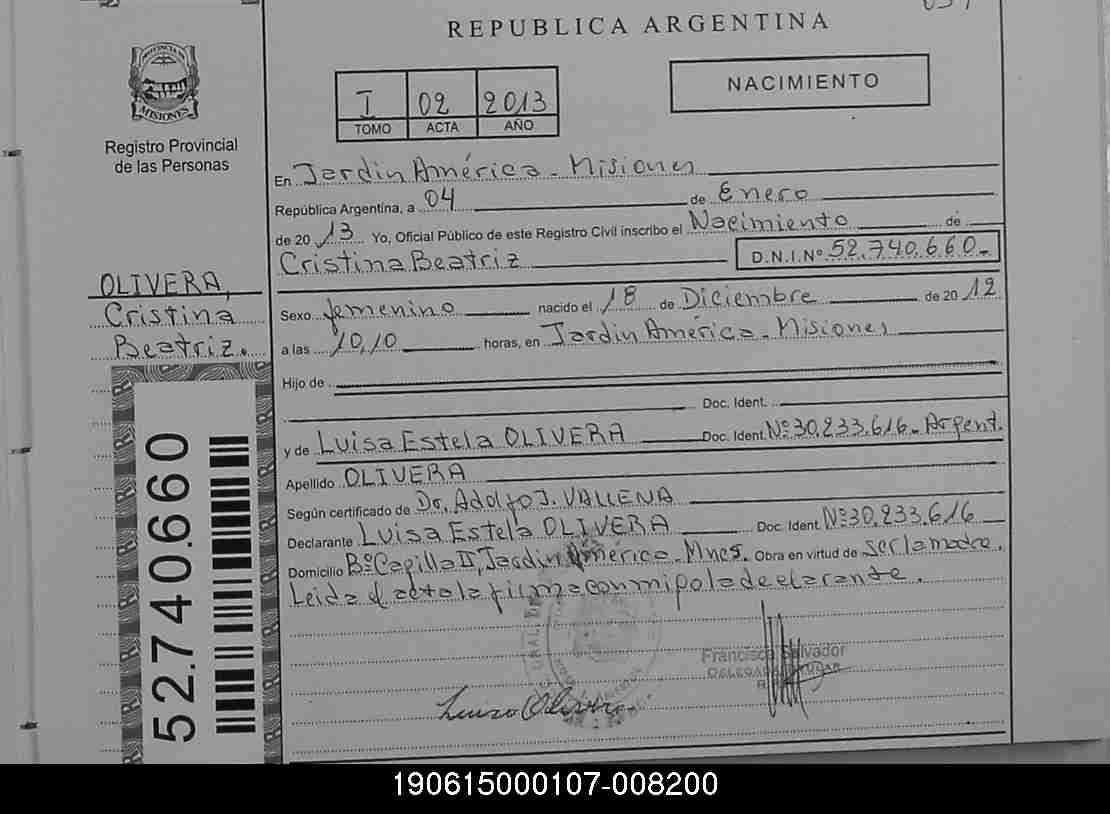 REPUBLICA ARGENTINA
PROVINCIA DE
MISIONES
Registro Provincial
de las Personas
I 02 2013
TOMO ACTA AÑO
NACIMIENTO
En Jardin América - Misiones
República Argentina, a 04 de Enero
de 2013 Yo, Oficial Público de este Registro Civil inscribo el Nacimiento de
Cristina Beatriz D.N.I.Nº 52.740.660-
OLIVERA,
Cristina
Beatriz.
Sexo femenino nacido el 18 de Diciembre de 2012
a las 10,10 horas, en Jardin América - Misiones
Hijo de
Doc. Ident.
y de Luisa Estela OLIVERA Doc. Ident. Nº 30.233.616 - Argent.
Apellido OLIVERA
Según certificado de Dr. Adolfo J. VALLENA
Declarante Luisa Estela OLIVERA Doc. Ident Nº 30.233.616
Domicilio Bº Capilla II, Jardin América - Mnes. Obra en virtud de ser la madre.
Leida el acta la firma conmigo la declarante.
52.740.660
Francisco Salvador
Luisa Olivera
190615000107-008200